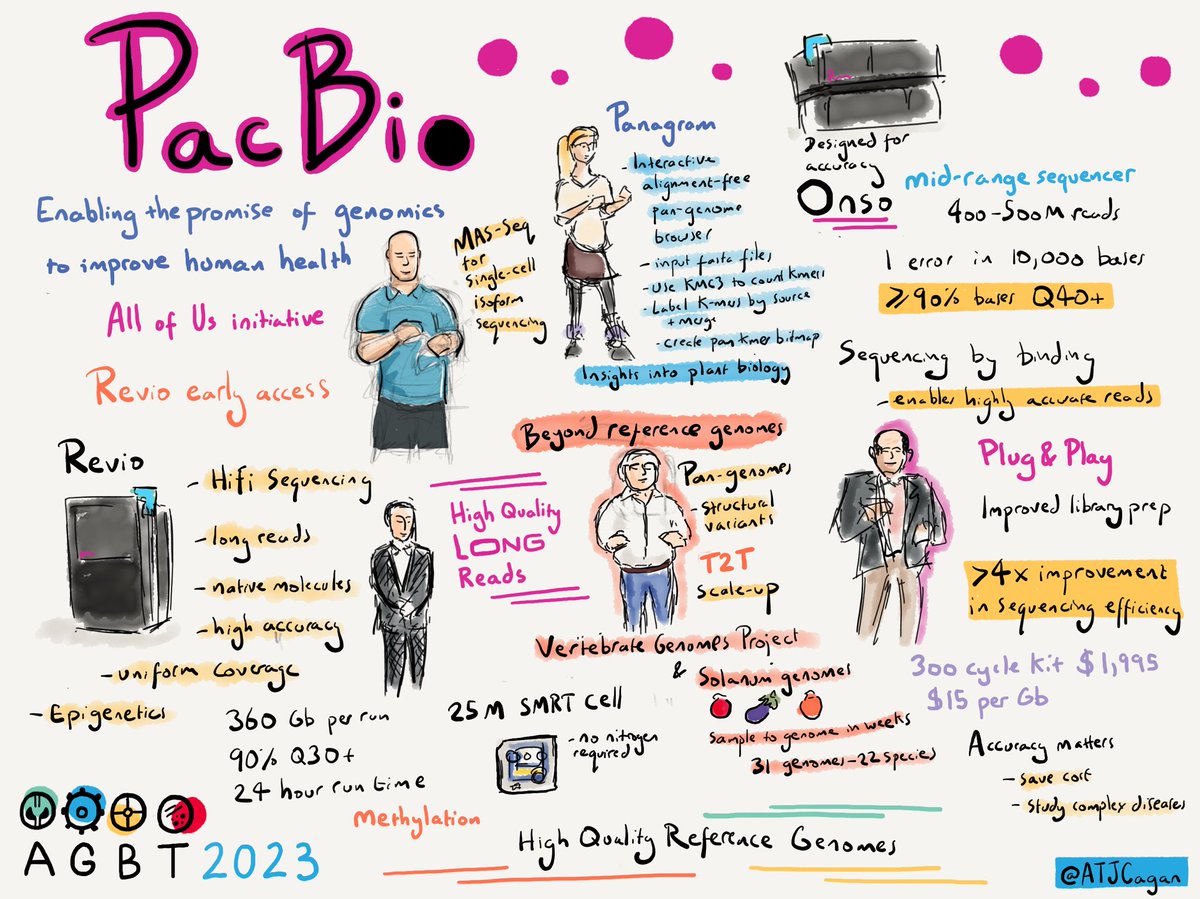 PacBio
Enabling the promise of genomics
to improve human health
All of Us initiative
Revio early access
MAS-Seq
for
single-cell
isoform
sequencing
Panagram
- Interactive
alignment-free
pan-genome
browser
- input fasta files
- Use KMC3 to count kmers
- Label K-mers by source
+ merge
- create pan kmer bitmap
Insights into plant biology
Designed for
accuracy
Onso
mid-range sequencer
400-500M reads
1 error in 10,000 bases
≥90% bases Q40+
Sequencing by binding
- enables highly accurate reads
Plug & Play
Improved library prep
>4x improvement
in sequencing efficiency
300 cycle kit $1,995
$15 per Gb
Accuracy matters
- save cost
- study complex diseases
Revio
- Hifi Sequencing
- long reads
- native molecules
- high accuracy
- uniform coverage
- Epigenetics
360 Gb per run
90% Q30+
24 hour run time
Methylation
High Quality
LONG
Reads
Beyond reference genomes
Pan-genomes
- structural
variants
T2T
scale-up
Vertebrate Genomes Project
& Solanum genomes
Sample to genome in weeks
31 genomes - 22 species
25M SMRT Cell
- no nitrogen
required
High Quality Reference Genomes
AGBT 2023
@ATJCagan